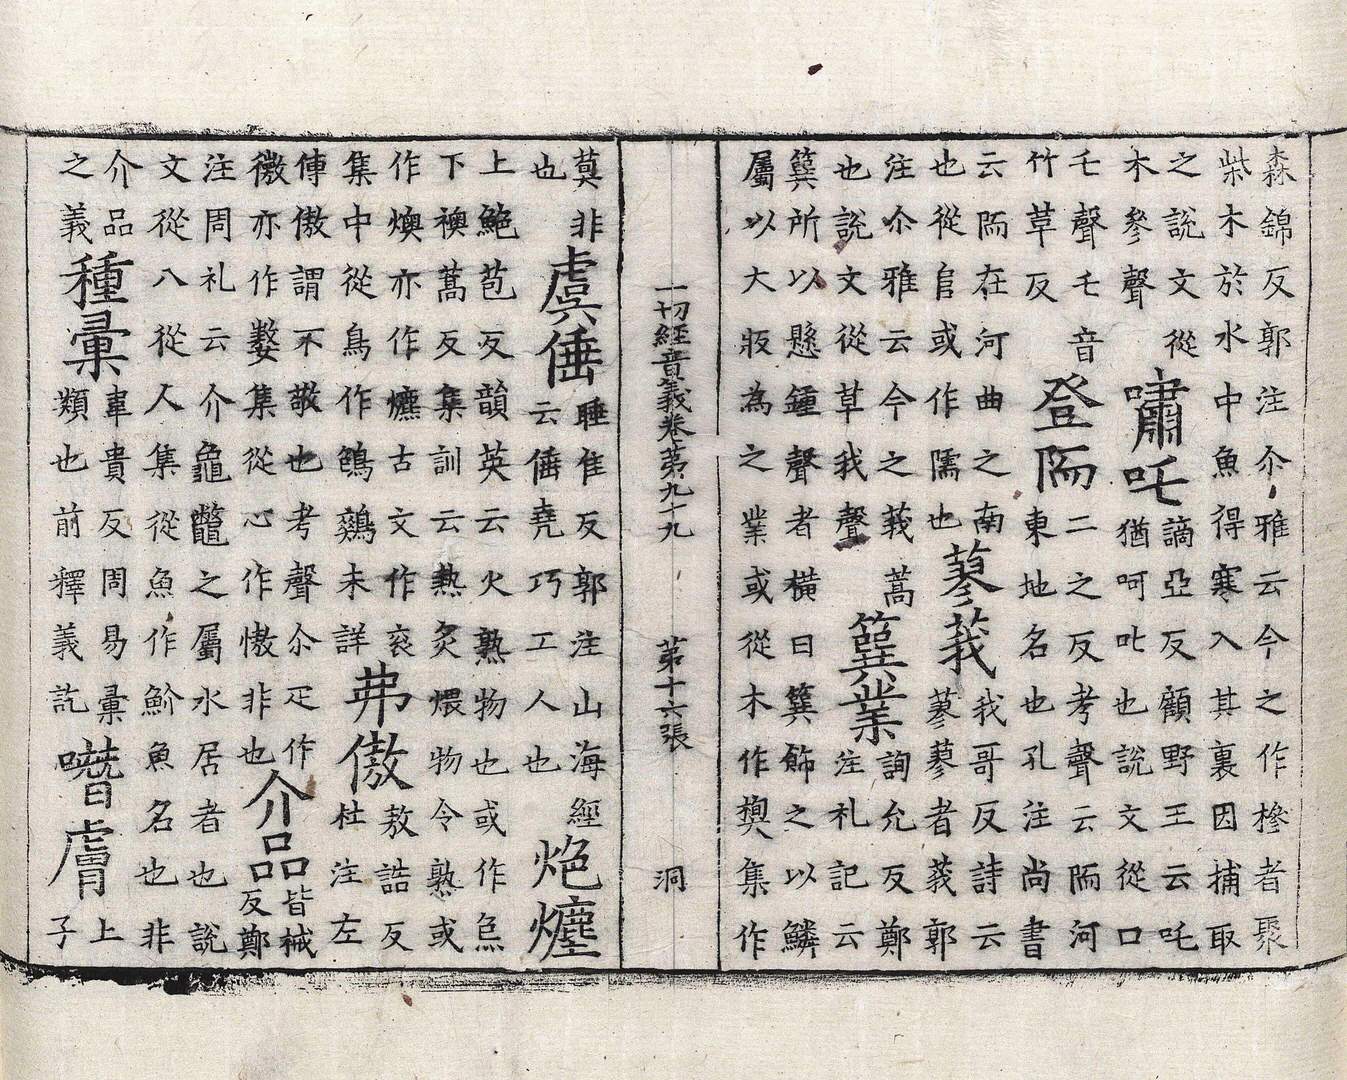 森錦反郭注尒雅云今之作椮者聚
柴木於水中魚得寒入其裏因捕取
之說文從
木參聲
嘯吒
謫亞反顧野王云吒
猶呵叱也說文從口
乇聲乇音
竹草反
登陑
二之反考聲云陑河
東地名也孔注尚書
云陑在河曲之南
也從𨸏或作隭也
蓼莪
我哥反詩云
蓼蓼者莪郭
注尒雅云今之莪蒿
也說文從草我聲
簨業
詢允反鄭
注礼記云
簨所以懸鍾聲者橫曰簨飾之以鱗
屬以大版為之業或從木作㯢集作
一切經音義卷第九十九 第十六張 洞
莫非
也
虞倕
睡隹反郭注山海經
云倕堯巧工人也
炮爊
上鮑苞反韻英云火熟物也或作炰
下襖蒿反集訓云熱炙煨物令熟或
作燠亦作爊古文作衮
集中從鳥作鷄未詳
茀傲
敖誥反
杜注左
傳傲謂不敬也考聲尒疋作
微亦作嫯集從心作憿非也
介品
皆械
反鄭
注周礼云介龜鼈之屬水居者也說
文從八從人集從魚作魪魚名也非
介品
之義
種彙
韋貴反周易彙
類也前釋義訖
膚
上
子